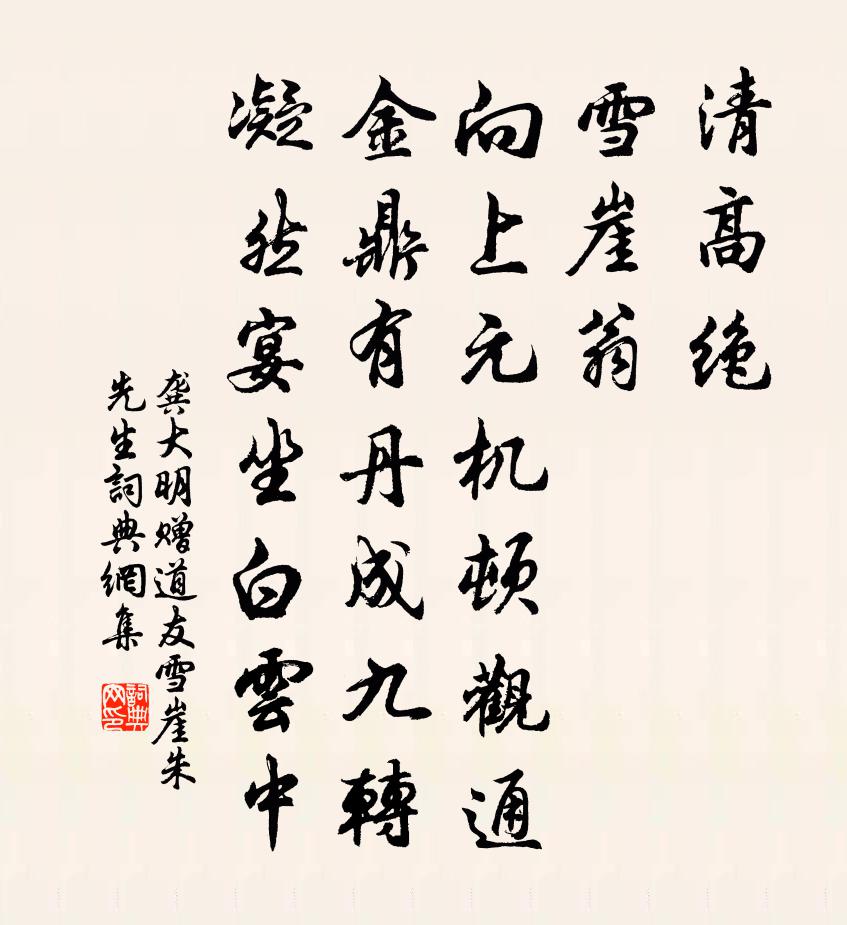 清高绝
雪崖翁
向上元机顿觀通
金鼎有丹成九轉
凝然宴坐白雲中
龚大明赠道友雪崖朱
先生詞典網集
詞典网印